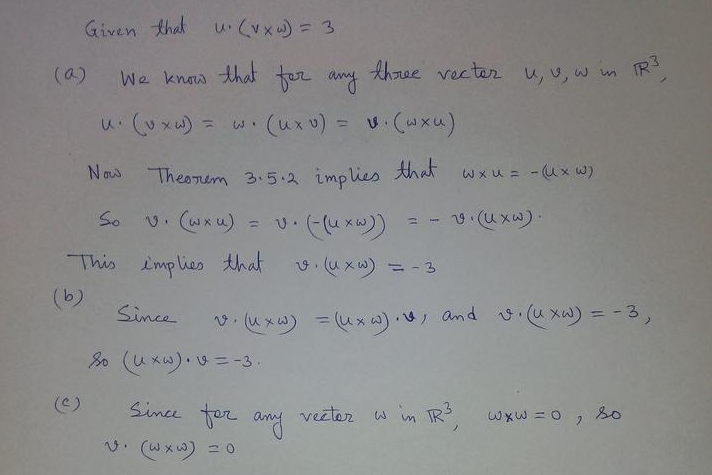 Given that u·(v×w) = 3
(a) We know that for any three vector u, v, w in ℝ³,
u·(v×w) = w·(u×v) = v·(w×u)
Now Theorem 3.5.2 implies that w×u = -(u×w)
So v·(w×u) = v·(-(u×w)) = - v·(u×w).
This implies that v·(u×w) = -3
(b)
Since v·(u×w) = (u×w)·v, and v·(u×w) = -3,
So (u×w)·v = -3.
(c) Since for any vector w in ℝ³, w×w = 0, so
v·(w×w) = 0